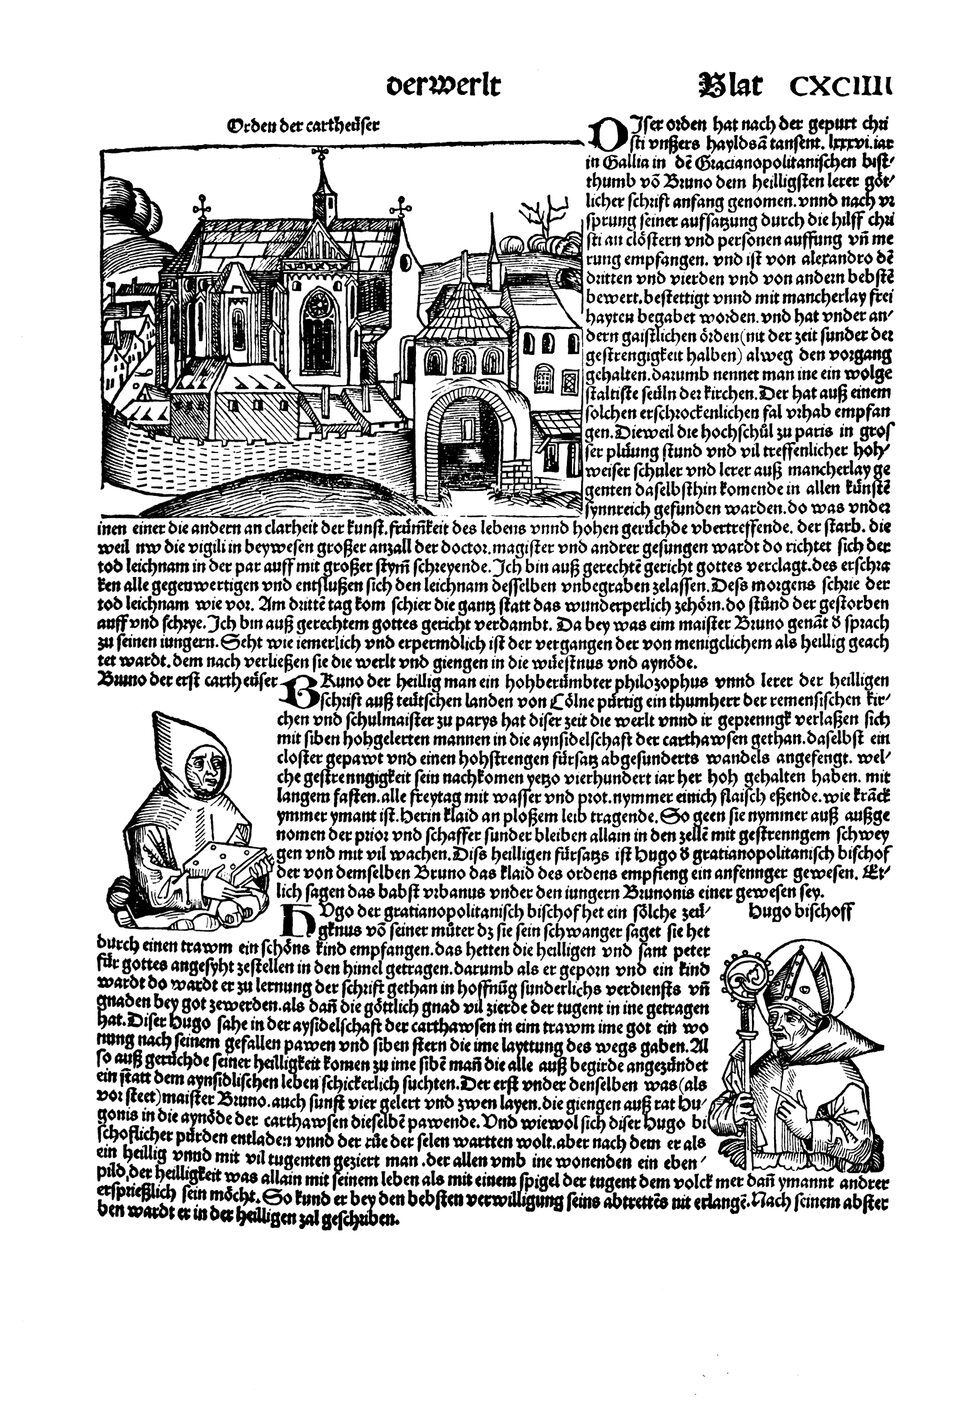 der Werlt
Blat CXCIIII
Orden der cartheüser
DIser orden hat nach der gepurt chri
sti vnßers haylds tausent. lxxxvi. iar
in Gallia in dē Gracianopolitanischen bist⸗
thumb vō Bruno dem heilligsten lerer göt⸗
licher schrift anfang genomen. vnnd nach vr
sprung seiner aufsatzung durch die hilff chri
sti an clöstern vnd personen auffung vñ me
rung empfangen. vnd ist von alexandro dē
dritten vnd vierden vnd von andern bebstē
bewert. bestettigt vnnd mit mancherlay frei
hayten begabet worden. vnd hat vnder an⸗
dern gaistlichen örden (nit der zeit sunder der
gestrengigkeit halben) alweg den vorgang
gehalten. darumb nennet man ine ein wolge
staltiste seüln der kirchen. Der hat auß einem
solchen erschrockenlichen fal vrhab empfan
gen. Dieweil die hochschůl zu paris in gros
ser plüung stund vnd vil treffenlicher hoh⸗
weiser schuler vnd lerer auß mancherlay ge
genten daselbsthin komende in allen künstē
synnreich gefunden warden. do was vnder
inen einer die andern an clarheit der kunst. frümkeit des lebens vnnd hohen gerüchde vbertreffende. der starb. die
weil nw die vigili in beywesen großer anzall der doctor. magister vnd andrer gesungen wardt do richtet sich der
tod leichnam in der par auff mit großer stym̄ schreyende. Ich bin auß gerechtē gericht gottes verclagt. des erschra
ken alle gegenwertigen vnd entslußen sich den leichnam desselben vnbegraben zelassen. Dess morgens schrie der
tod leichnam wie vor. Am drittē tag kom schier die gantz statt das wunderperlich zehörn. do stůnd der gestorben
auff vnd schrye. Ich bin auß gerechtem gottes gericht verdambt. Da bey was eim maister Bruno genāt ď sprach
zu seinen iungern. Seht wie iemerlich vnd erpermdlich ist der vergangen der von menigclichem als heillig geach
tet wardt. dem nach verließen sie die werlt vnd giengen in die wüestnus vnd aynöde.
Bruno der erst cartheüser
BRuno der heillig man ein hohberümbter philozophus vnnd lerer der heilligen
schrift auß teütschen landen von Cölne pürtig ein thumherr der remensischen kir⸗
chen vnd schulmaister zu parys hat diser zeit die werlt vnnd ir geprenngk verlaßen sich
mit siben hohgelerten mannen in die aynsidelschaft der carthawsen gethan. daselbst ein
closter gepawt vnd einen hohstrengen fürsatz abgesunderts wandels angefengt. wel⸗
che gestrenngigkeit sein nachkomen yetzo vierhundert iar her hoh gehalten haben. mit
langem fasten. alle freytag mit wasser vnd prot. nymmer einich flaisch eßende. wie kräck
ymmer ymant ist. Herin klaid an ploßem leib tragende. So geen sie nymmer auß außge
nomen der prior vnd schaffer sunder bleiben allain in den zellē mit gestrenngem schwey
gen vnd mit vil wachen. Diss heilligen fürsatzs ist Hugo ď gratianopolitanisch bischof
der von demselben Bruno das klaid des ordens empfieng ein anfennger gewesen. Et⸗
lich sagen das babst vrbanus vnder den iungern Brunonis einer gewesen sey.
Hugo bischoff
HVgo der gratianopolitanisch bischof het ein sölche zeü⸗
gknus vō seiner müter dz sie sein schwanger saget sie het
durch einen trawm ein schöns kind empfangen. das hetten die heilligen vnd sant peter
für gottes angesyht zestellen in den himel getragen. darumb als er geporn vnd ein kind
wardt do wardt er zu lernung der schrift gethan in hoffnüg sunderlichs verdiensts vñ
gnaden bey got zewerden. als dañ die göttlich gnad vil zierde der tugent in ine getragen
hat. Diser Hugo sahe in der aysidelschaft der carthawsen in eim trawm ime got ein wo
nung nach seinem gefallen pawen vnd siben stern die ime layttung des wegs gaben. Al
so auß gerüchde seiner heilligkeit komen zu ime sibē mañ die alle auß begirde angezündet
ein statt dem aynsidlischen leben schickerlich suchten. Der erst vnder denselben was (als
vor steet) maister Bruno. auch sunst vier gelert vnd zwen layen. die giengen auß rat Hu⸗
gonis in die aynöde der carthawsen dieselbē pawende. Vnd wiewol sich diser Hugo bi
schoflicher pürden entladen vnnd der rüe der selen wartten wolt. aber nach dem er als
ein heillig vnnd mit vil tugenten geziert man. der allen vmb ine wonenden ein eben⸗
pild, der heilligkeit was allain mit seinem leben als mit einem spigel der tugent dem volck mer dañ ymannt andrer
ersprießlich sein möcht. So kund er bey den bebsten verwilligung seins abtrettēs nit erlangē. Nach seinem abster
ben wardt er in der heilligen zal geschriben.